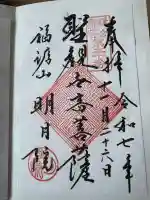 奉拝
令和七年
十一月二十六日
聖観世音菩薩
福源山
明月院